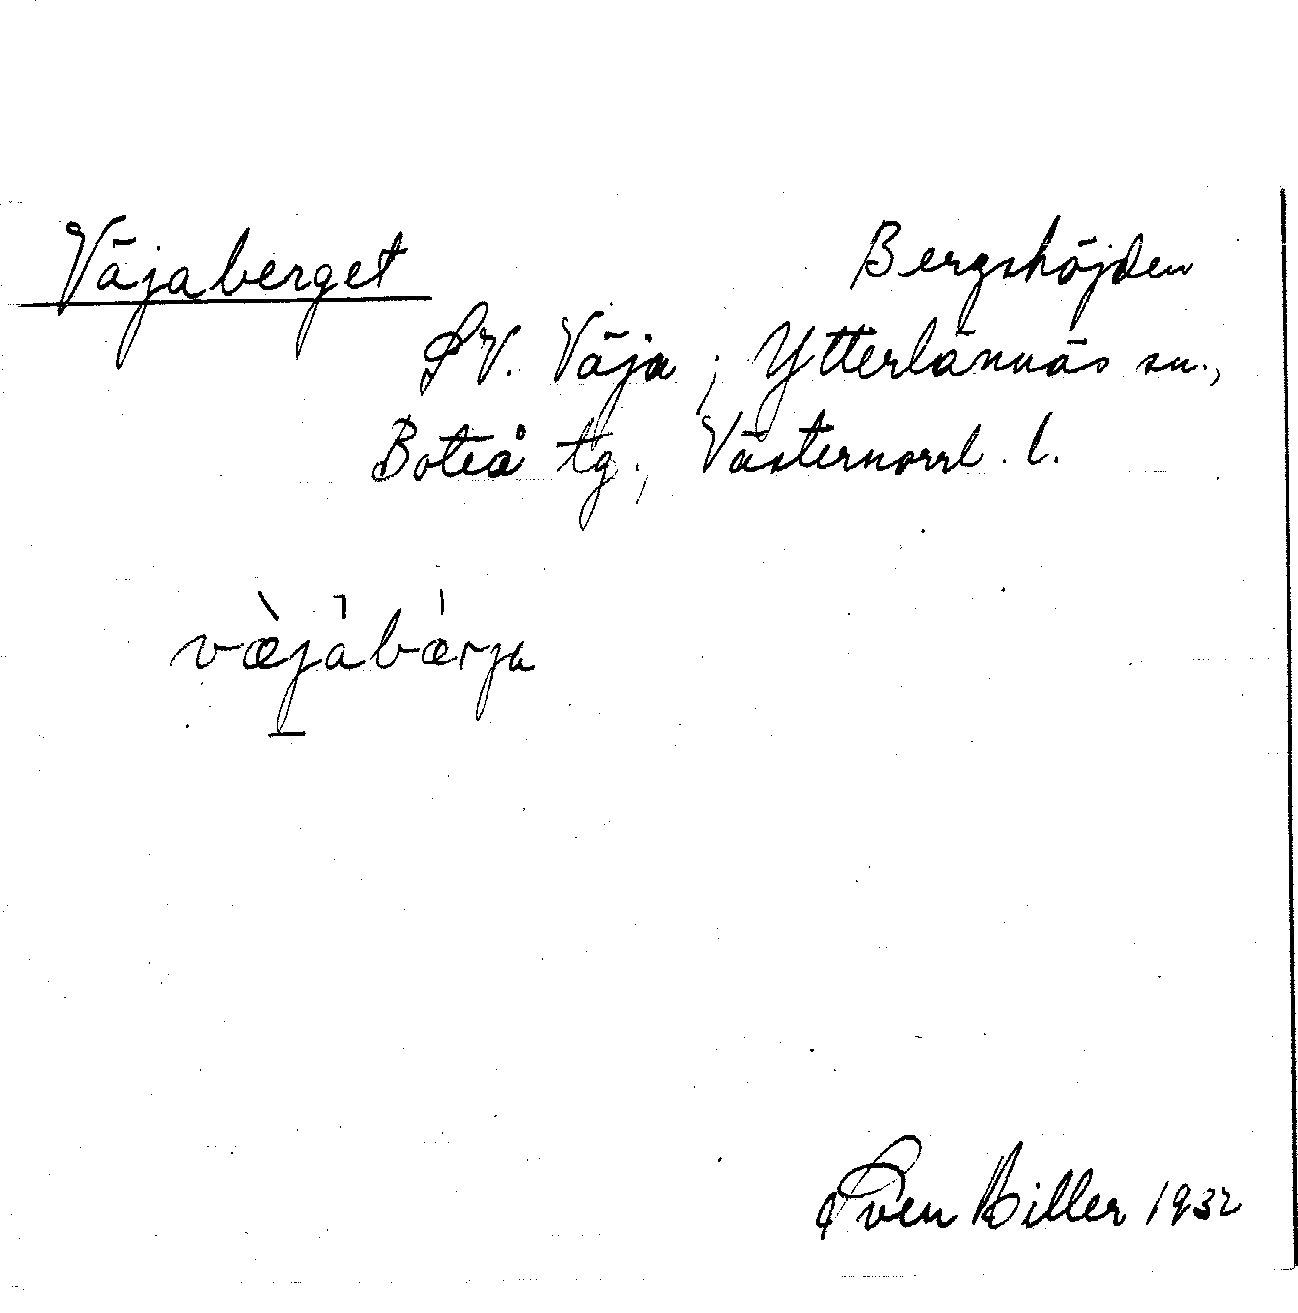 Väjaberget Bergshöjden
SV. Väja, Ytterlännäs sn.,
Boteå tg., Västernorrl. l.
væjabærja
Sven Biller 1932